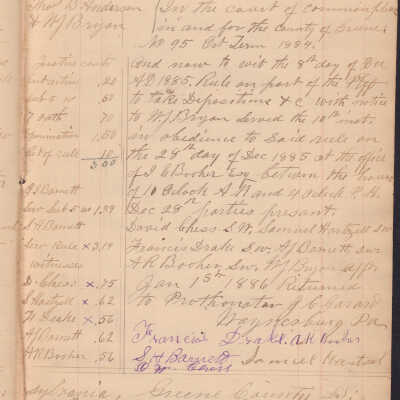 Thos D Anderson
& W J Bryan
In the court of common pleas
in and for the county of Greene
No 95 Oct Term 1884.
justice costs
.20
sub 5 w .50
7 oath 70
1.50
of rule .10
3.00
And now to wit the 8th day of Dec
A D 1885. Rule on part of the Plff
to take Depositions & c. with notice
to W J Bryan Served the 10th inst.
in obedience to said rule on
the 28th day of Dec 1885 at the office
of J C Booher Esq between the hours
of 10 Oclock A M and 4 Oclock P. M.
Dec 28th parties present.
David Chess S W, Samuel Hartzell Sw
Francis Drake Sw. A J Barnett Swr
A R Booher Sw. W J Bryan affr.
Jan 15th 1886 Returned
to Prothonotary
Waynesburg Pa
Barnett
Ser Sub 5 w 1.39
Barnett
Ser Rule x 3.14
witnesses
D Chess x .75
S Hartzell x .62
Fr Drake x .56
A J Barnett .62
A R Booher .56
Francis Drake. A R Booher
S. H Barnett Samuel Hartzell
Chess
Sylvania, Greene County